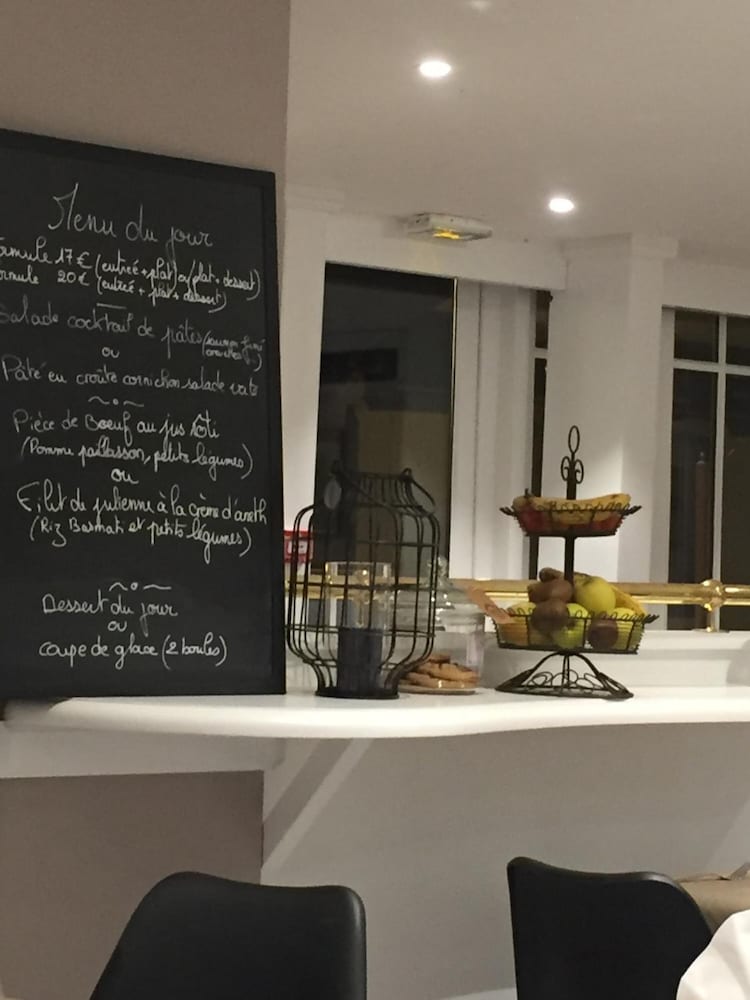 Menu du jour
Formule 17€ (entrée + plat) ou (plat + dessert)
Formule 20€ (entrée + plat + dessert)
Salade cocktail de pâtes (saumon fumé
crevettes)
ou
Pâté en croûte cornichon salade verte
Pièce de Boeuf au jus rôti
(Pomme paillasson, petits légumes)
ou
Filet de julienne à la crème d'aneth
(Riz Basmati et petits légumes)
Dessert du jour
ou
Coupe de glace (2 boules)